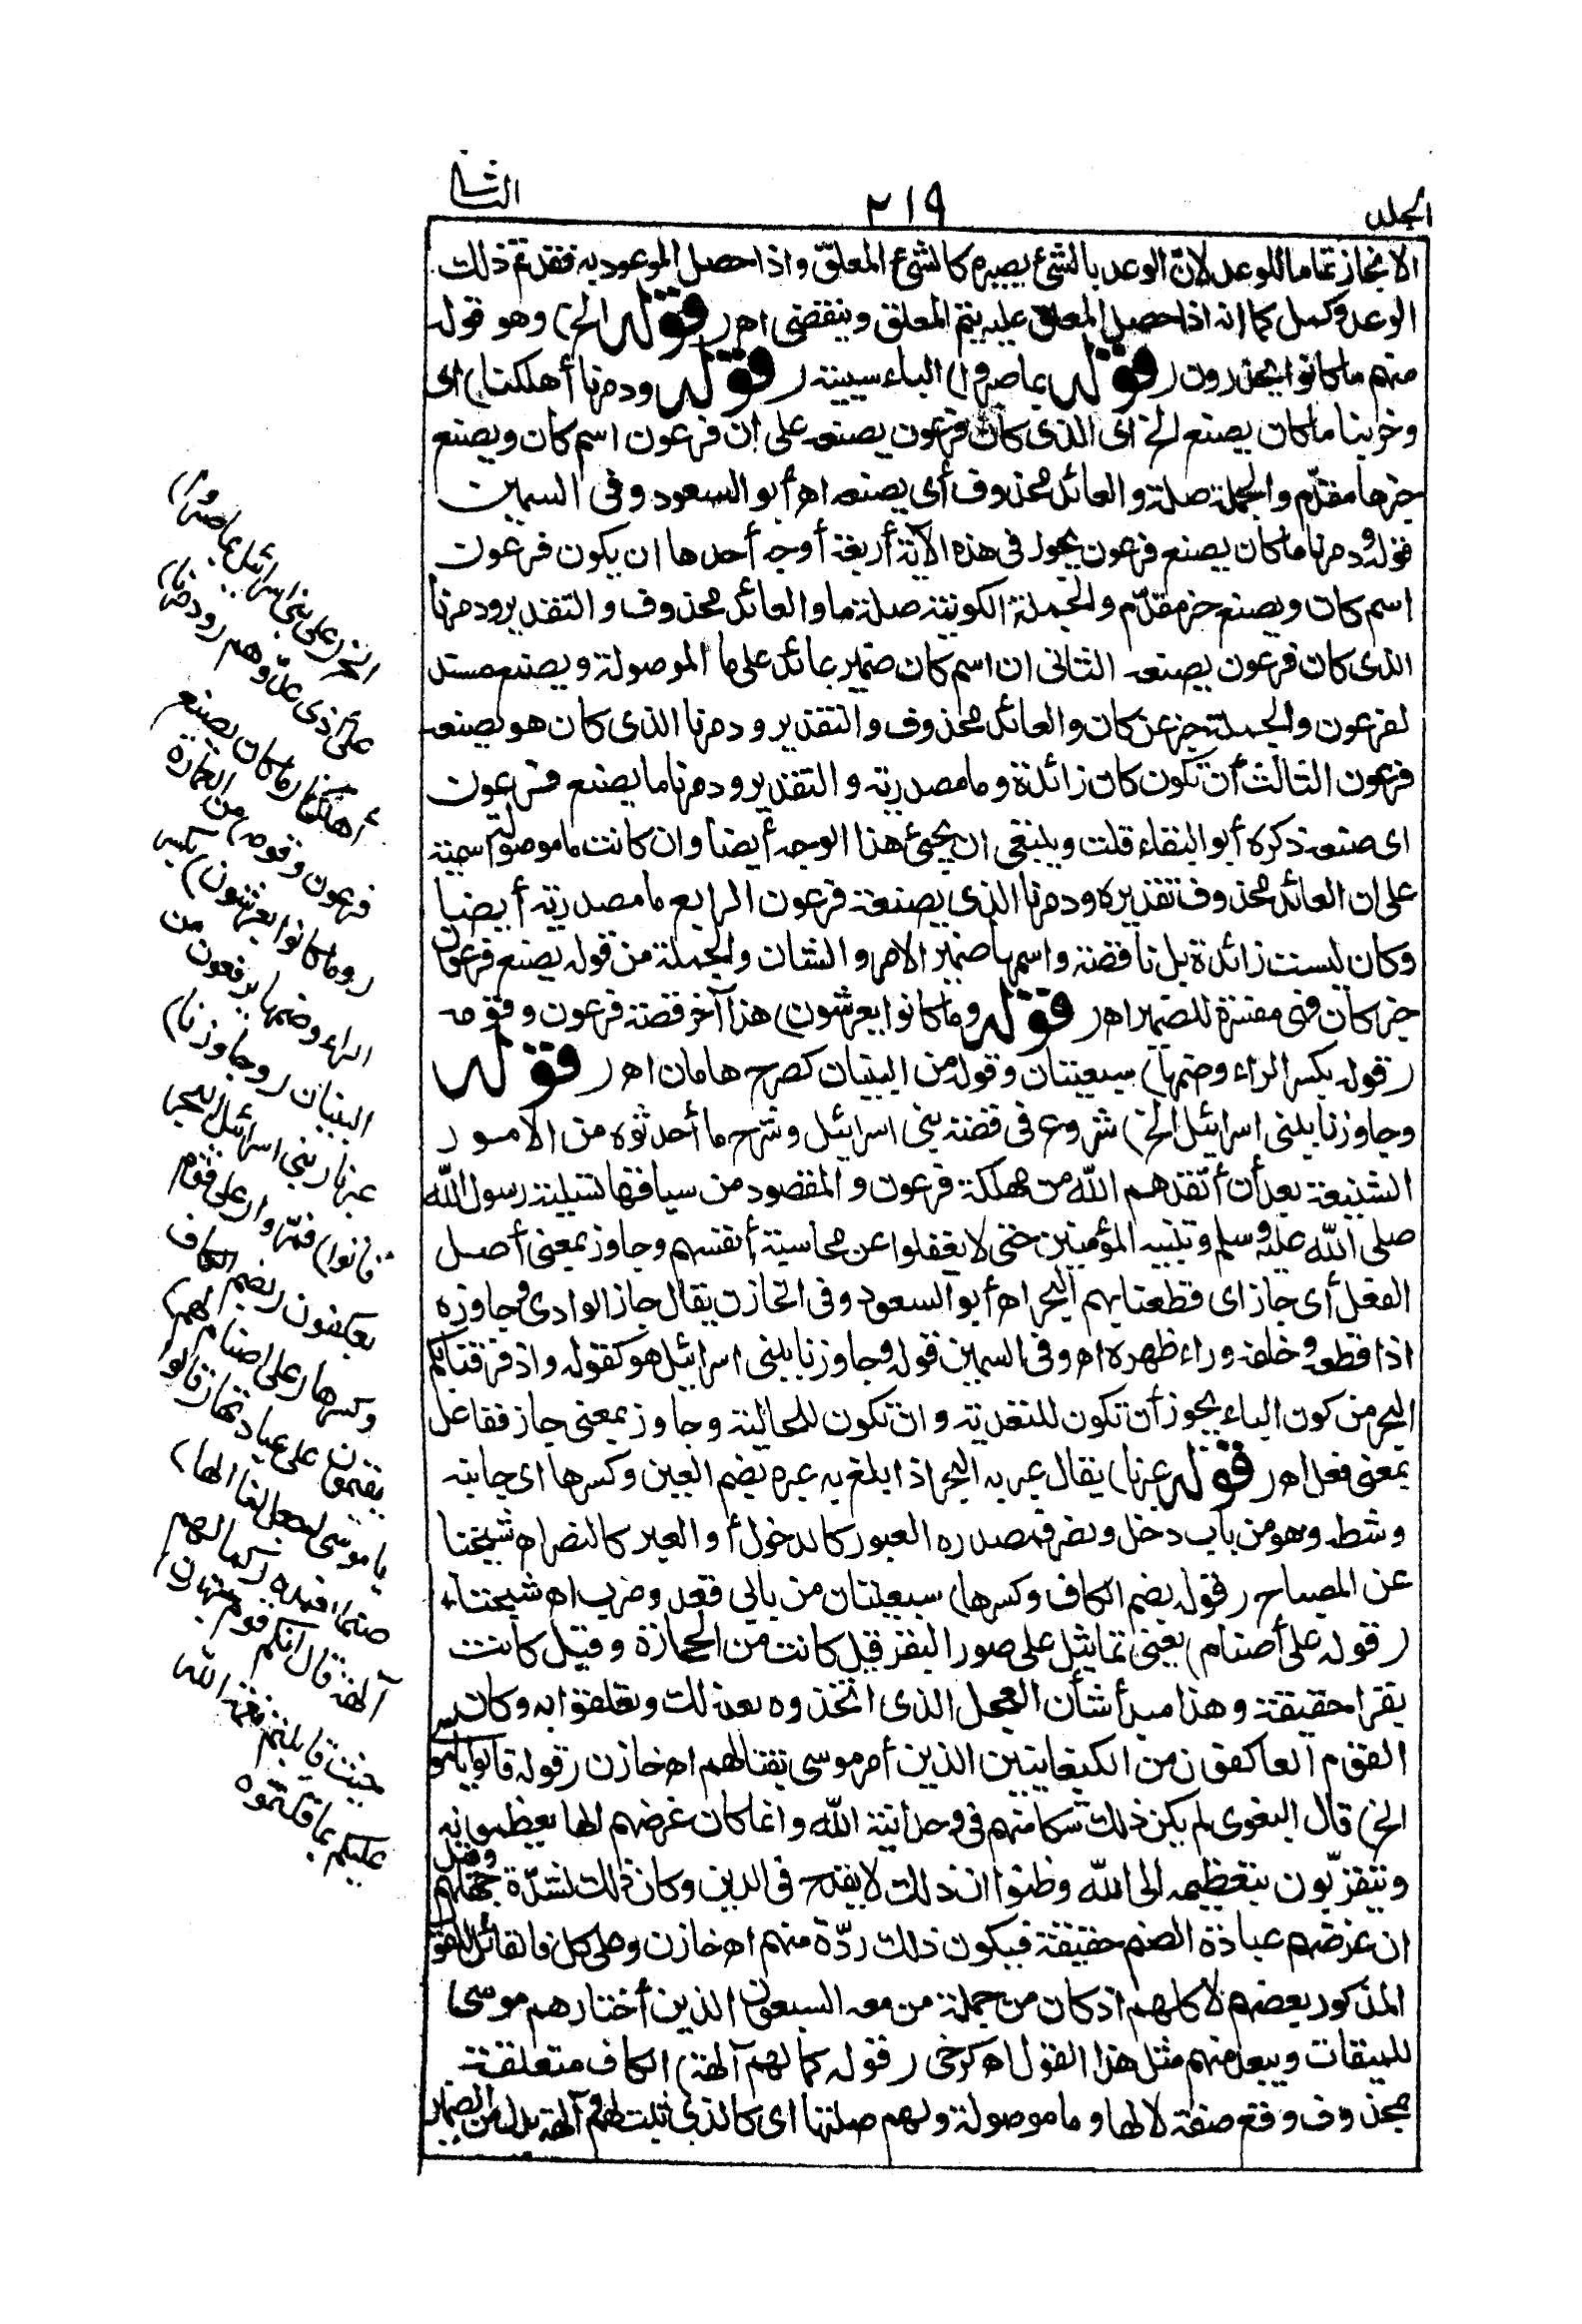 الجلد ٢١٩ الثانى
الانجاز تماما للوعد لانّ الوعد بالشئ يصيره كالشئ المعلق واذا حصل الموعود به فقد تم ذلك
الوعد وكمل كما انه اذا حصل المعلق عليه يتم المعلق وينقضى اهـ (قوله الخ) وهو قوله
منهم ماكانوا يحذرون (قوله بما صبروا) الباء سببية (قوله ودمرنا أهلكنا) اى
وخربنا ماكان يصنع الخ اى الذى كان فرعون يصنعه على ان فرعون اسم كان ويصنع
خبرها مقدّم والجملة صلة والعائد محذوف أى يصنعه اهـ أبو السعود وفى السمين
قوله ودمرنا ماكان يصنع فرعون يجوز فى هذه الآية أربعة أوجه أحدها ان يكون فرعون
اسم كان ويصنع خبر مقدّم والجملة الكونية صلة ما والعائد محذوف والتقدير ودمرنا
الذى كان فرعون يصنعه الثانى ان اسم كان ضمير عائد على ما الموصولة ويصنع مسند
لفرعون والجملة خبر عن كان والعائد محذوف والتقدير ودمرنا الذى كان هو يصنعه
فرعون الثالث أن تكون كان زائدة وما مصدرية والتقدير ودمرنا ما يصنع فرعون
اى صنعه ذكره أبو البقاء قلت وينبغى ان يجئ هذا الوجه أيضا وان كانت ما موصولة اسمية
على ان العائد محذوف تقديره ودمرنا الذى يصنعه فرعون الرابع ما مصدرية أيضا
وكان ليست زائدة بل ناقصة واسمها ضمير الامر والشان والجملة من قوله يصنع فرعون
خبر كان فهى مفسرة للضمير اهـ (قوله وماكانوا يعرشون) هذا آخر قصة فرعون وقومه
(قوله بكسر الراء وضمها) سبعيتان وقوله من البنيان كصرح هامان اهـ (قوله
وجاوزنا ببنى اسرائيل الخ) شروع فى قصة بنى اسرائيل وشرح ما أحدثوه من الامور
الشنيعة بعد أن أنقذهم الله من مهلكة فرعون والمقصود من سياقها تسلية رسول الله
صلى الله عليه وسلم وتنبيه المؤمنين حتى لا يغفلوا عن محاسبة أنفسهم وجاوز بمعنى أصل
الفعل أى جاز اى قطعنا بهم البحر اهـ أبو السعود وفى الخازن يقال جاز الوادى وجاوزه
اذا قطعه وخلفه وراء ظهره اهـ وفى السمين قوله وجاوزنا ببنى اسرائيل هو كقوله واذ فرقنا بكم
البحر من كون الباء يجوز أن تكون للتعدية وان تكون للحالية وجاوز بمعنى جاز ففاعل
بمعنى فعل اهـ (قوله عبرنا) يقال عبر به البحر اذا بلغ به عبره بضم العين وكسرها اى جانبه
وشطه وهو من باب دخل ونصر فمصدره العبور كالدخول أو العبر كالنصر اهـ شيخنا
عن المصباح (قوله بضم الكاف وكسرها) سبعيتان من بابى قعد وضرب اهـ شيخنا
(قوله على أصنام) يعنى تماثيل على صور البقر قيل كانت من الحجارة وقيل كانت
بقرا حقيقة وهذا مبدأ شأن العجل الذى اتخذوه بعد ذلك وتعلقوا به وكان
القوم العاكفون من الكنعانيين الذين أمر موسى بقتالهم اهـ خازن (قوله قالوا ياموسى
الخ) قال البغوى لم يكن ذلك شكا منهم فى وحدانية الله وانما كان غرضهم الها يعظمونه
ويتقرّبون بتعظيمه الى الله وظنوا ان ذلك لا يقدح فى الدين وكان ذلك لشدّة جهلهم وقيل
ان غرضهم عبادة الصنم حقيقة فيكون ذلك ردّة منهم اهـ خازن وعلى كل فالقائل للقول
المذكور بعضهم لا كلهم اذ كان من جملة من معه السبعون الذين أختارهم موسى
للميقات ويبعد منهم مثل هذا القول اهـ كرخى (قوله كما لهم آلهة) الكاف متعلقة
بمحذوف وقع صفة لالها وما موصولة ولهم صلتها اى كالذى ثبت لهم وآلهة بدل من الضمير
على بنى اسرائيل بما صبروا)
على أذى عدوّهم (ودمرنا)
أهلكنا (ماكان يصنع
فرعون وقومه) من العمارة
(وماكانوا يعرشون) بكسر
الراء وضمها يرفعون من
البنيان (وجاوزنا)
عبرنا (ببنى اسرائيل البحر
فأتوا) فمرّوا (على قوم
يعكفون) بضم الكاف
وكسرها (على أصنام لهم)
يقيمون على عبادتها (قالوا
ياموسى اجعل لنا الها)
صنما نعبده (كما لهم
آلهة قال انكم قوم تجهلون)
حيث قابلتم نعمة الله
عليكم بما قلتموه